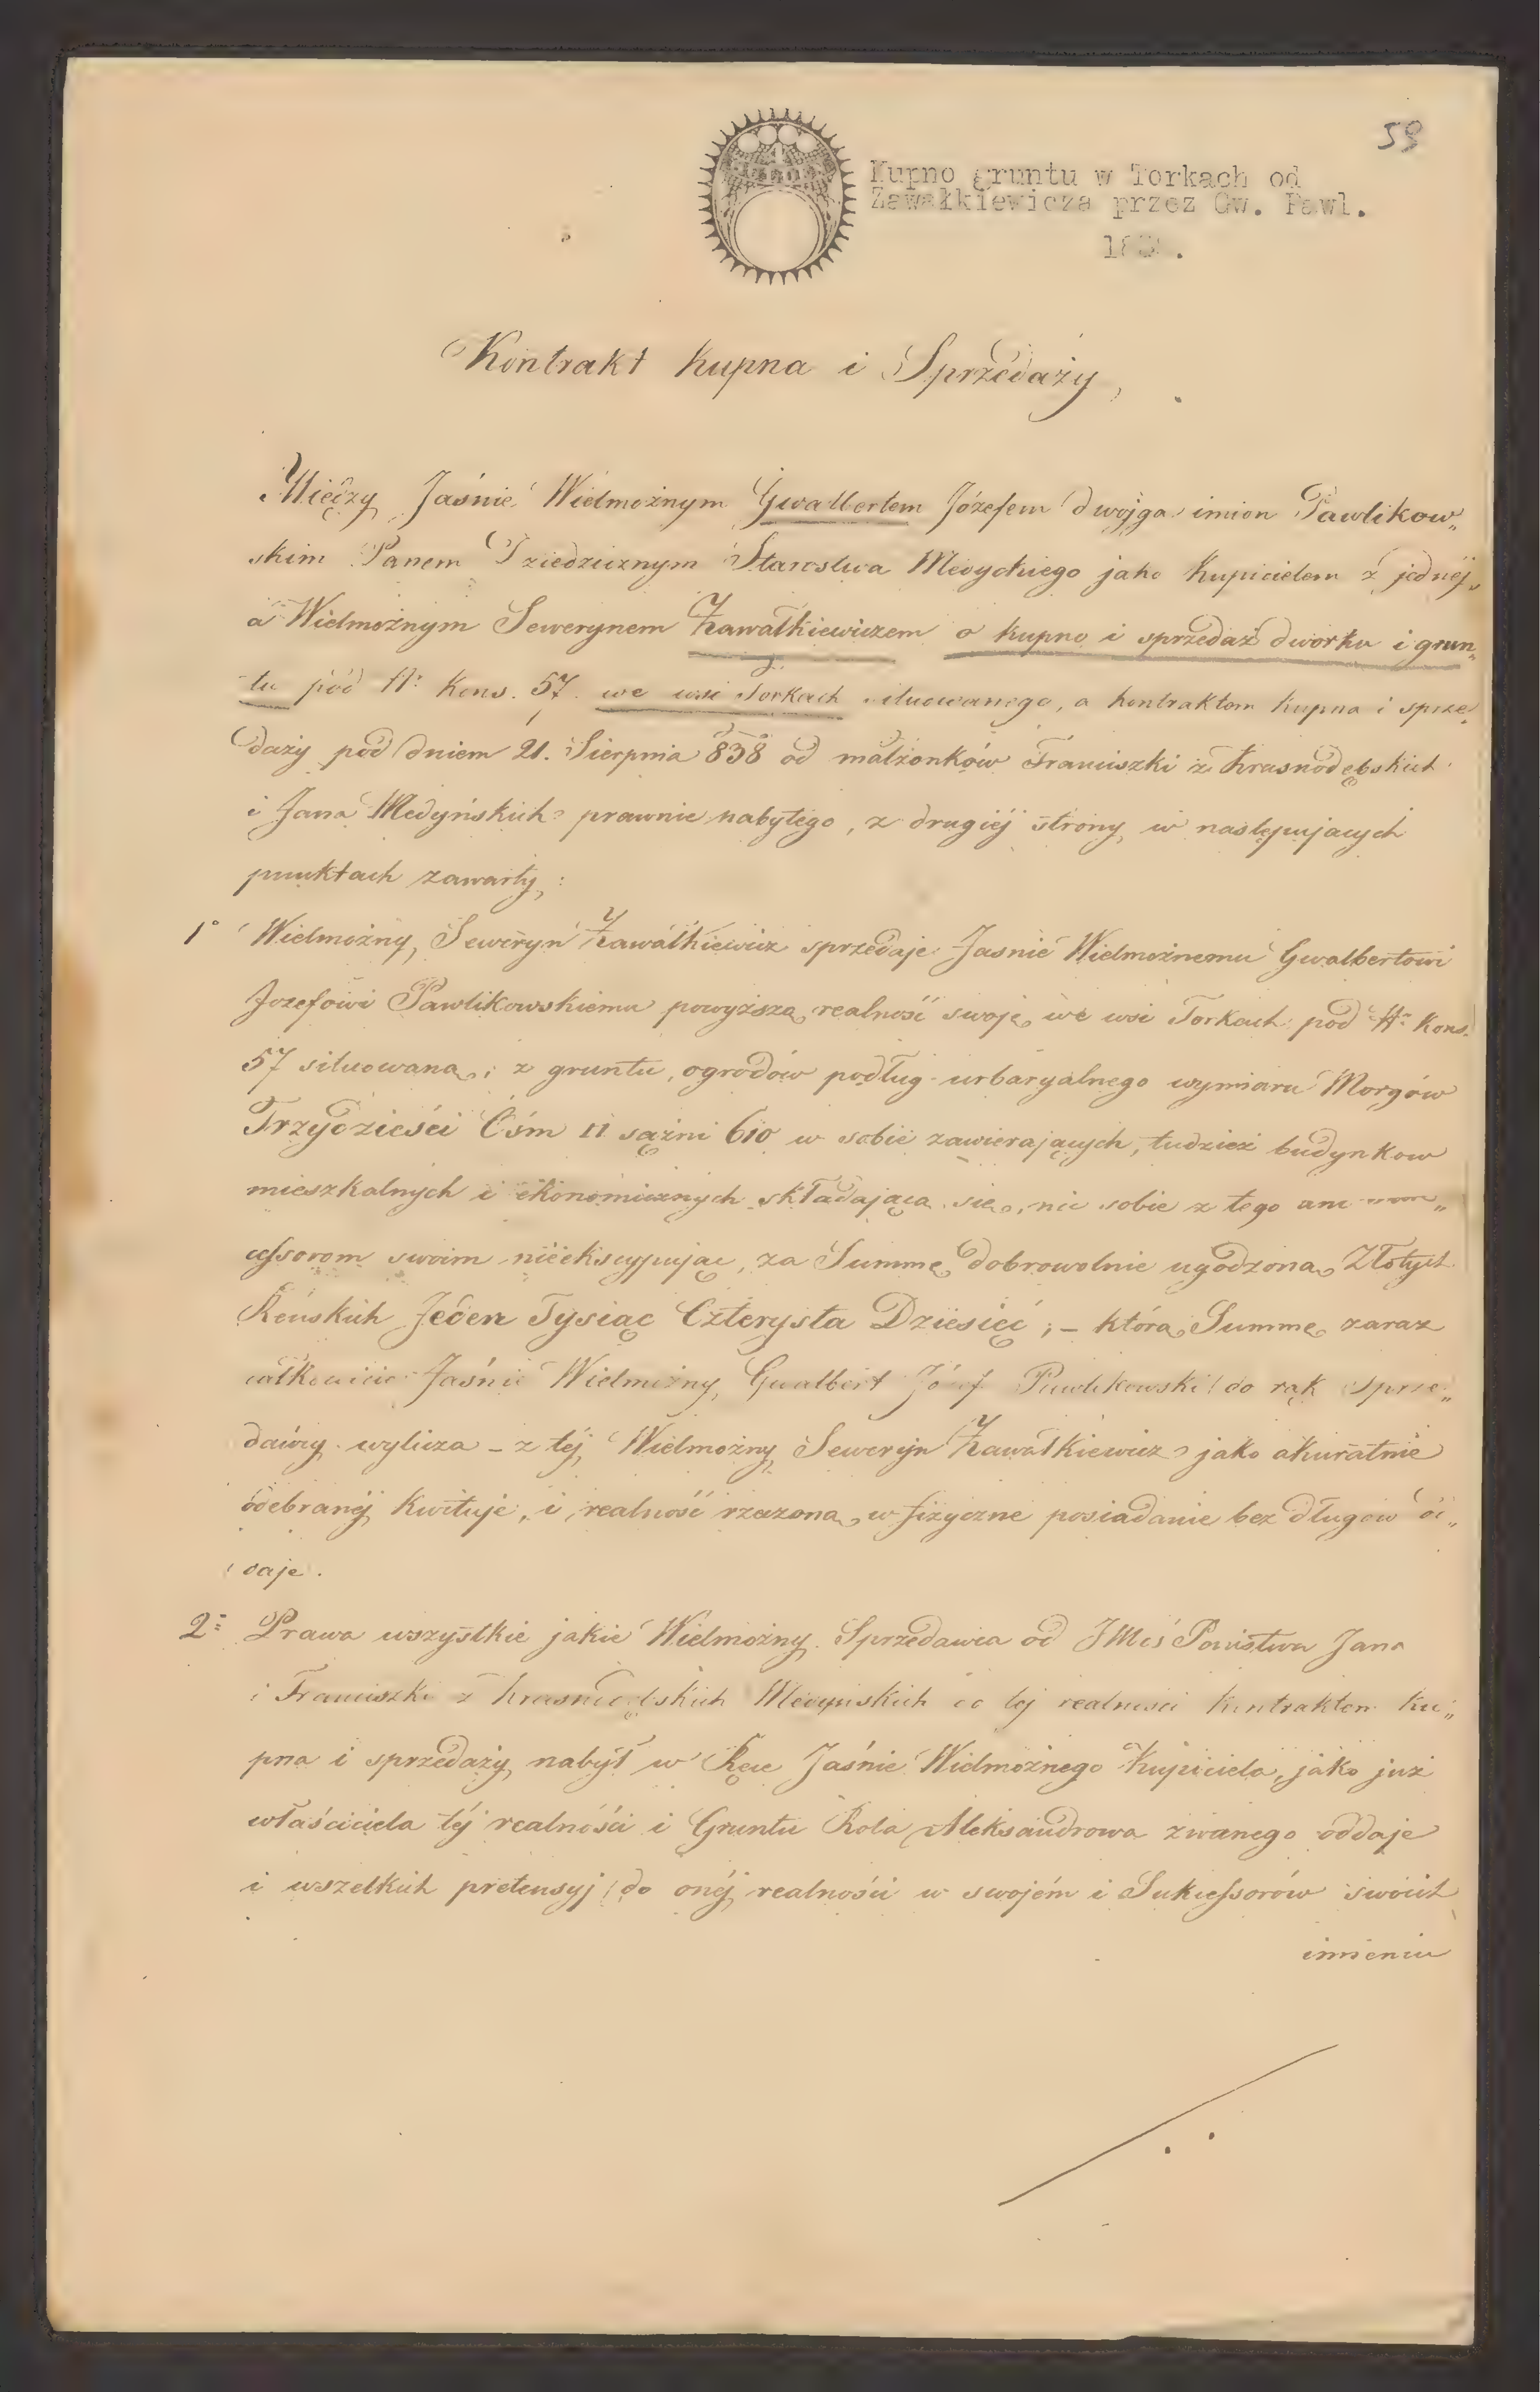 59
Kupno gruntu w Torkach od
Zawałkiewicza przez Gw. Pawl.
Kontrakt kupna i Sprzedaży,
Między Jaśnie Wielmożnym Gwalbertem Józefem dwojga imion Pawlikow„
skim Panem Dziedzicznym Starostwa Medyckiego jako Kupicielem z jednéj,
a Wielmożnym Sewerynem Zawałkiewiczem o kupno i sprzedaż dworku i grun„
tu pod N: Kons. 57. we wsi Torkach situowanego, a kontraktem kupna i sprze„
daży pod dniem 21. Sierpnia 838 od małżonków Franciszki z Krasnodębskich
i Jana Medyńskich prawnie nabytego, z drugiéj strony w następujących
punktach zawarty:
1° Wielmożny Seweryn Zawałkiewicz sprzedaje Jasnie Wielmożnemu Gwalbertowi
Jozefowi Pawlikowskiemu powyższą realność swoję we wsi Torkach pod N: Kons.
57 situowaną; z gruntu, ogrodów podług urbaryalnego wymiaru Morgów
Trzydzieści Ośm sążni 610 w sobie zawierających, tudzież budynkow
mieszkalnych i ekonomicznych składającą się, nic sobie z tego ani
cessorom swoim nieekscypując, za Summę dobrowolnie ugodzoną Złotych
Reńskich Jeden Tysiąc Czterysta Dziesięć; – którą Summę zaraz
całkowicie Jaśnie Wielmożny Gwalbert Józef Pawlikowski do rąk sprze„
dawcy wylicza – z téj Wielmożny Seweryn Zawałkiewicz jako akuratnie
odebranéj kwituje, i realność rzeczoną w fizyczne posiadanie bez długow od„
daje.
2: Prawa wszystkie jakie Wielmożny Sprzedawca od JMĆ Państwa Jana
i Franciszki z Krasnodębskich Medyńskich do tej realności kontraktem ku„
pna i sprzedaży nabył w Ręce Jaśnie Wielmożnego Kupiciela, jako już
właściciela téj realności i Gruntu Rola Aleksandrowa zwanego oddaje
i wszelkich pretensyj do onéj realności w swojém i Sukcessorów swoich
imieniu